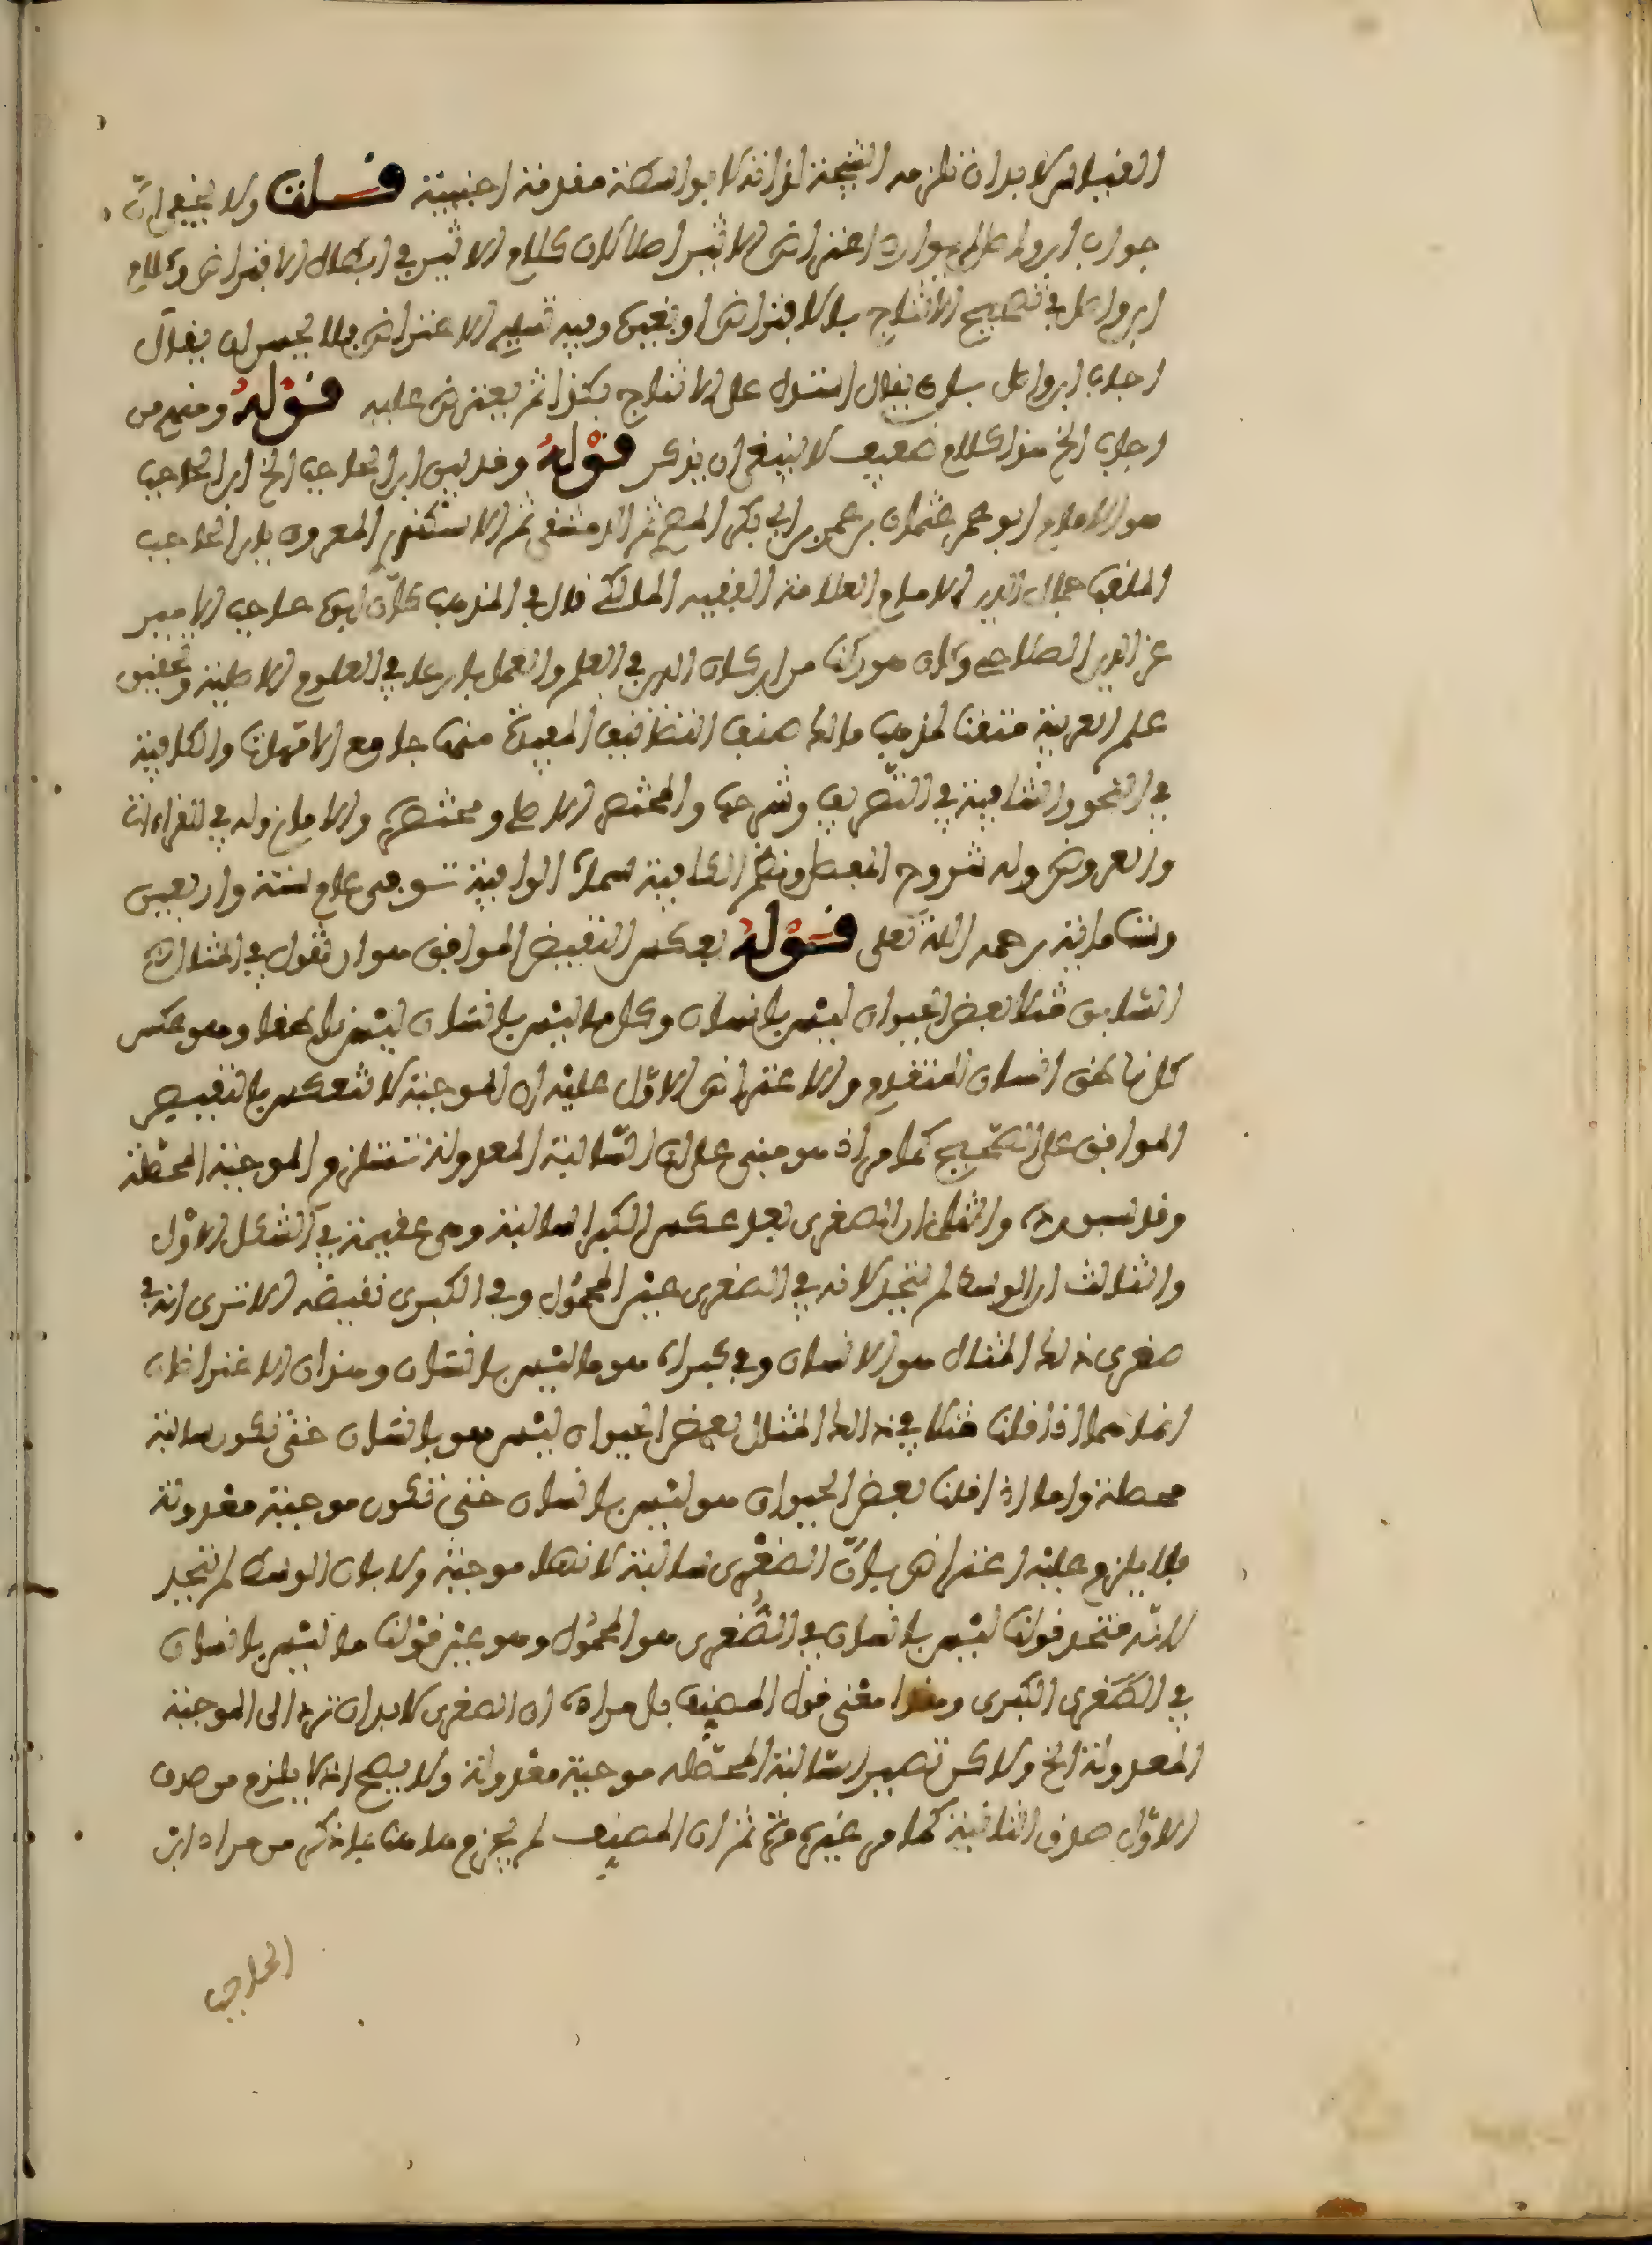 القياس لا بد ان تلزمه النتيجة لذاته لا بواسطة مقدمة اجنبية قلت ولا يخفى ان
جواب ابن واصل اعتراض الاثير اصلا لان كلام الاثير في ابطال الاقتراني وكلام
ابن واصل في تصحيح الانتاج بالاقتراني او بغيره وفيه تسليم الاعتراض فلا يحسن ان يقال
اجاب ابن واصل بان يقال استدل على الانتاج بكذا ثم يعترض عليه قوله ومنهم من
اجاب الخ هذا كلام ضعيف لا ينبغي ان يذكر قوله وقد بين ابن الحاجب الخ ابن الحاجب
هو الامام ابو عمر عثمان بن عمر بن ابي بكر المصري ثم الدمشقي ثم الاسكندري المعروف بابن الحاجب
الملقب جمال الدين الامام العلامة الفقيه المالكي قال في المذهب كان ابوه حاجب الامير
عز الدين الصلاحي وكان هو ركنا من اركان الدين في العلم والعمل بارعا في العلوم الاصلية وتحقيق
علم العربية متقنا لمذهب مالك صنف التصانيف المفيدة منها جامع الامهات والكافية
في النحو والشافية في التصريف وشرحها والمختصر الاصلي ومختصره والامالي وله في القراءات
والعروض وله شروح المفصل ونظم الكافية سماه الوافية توفي عام ستة واربعين
وستمائة رحمه الله تعلى قوله بعكس النقيض الموافق هو ان نقول في المثال
السابق مثلا بعض الحيوان ليس بانسان وكل ما ليس بانسان ليس ناطقا وهو عكس
كل ناطق انسان المتقدم والاعتراض الاول عليه ان الموجبة لا تنعكس بالنقيض
الموافق على الصحيح كما مر اذ هو مبني على ان السالبة المعدولة تستلزم الموجبة المحصلة
وقد سبق رده والثاني ان الصغرى بعد عكس الكبرى سالبة وهي عقيمة في الشكل الاول
والثالث ان الوسط لم يتحد لانه في الصغرى عين المحمول وفي الكبرى نقيضه الا ترى انه في
صغرى ذلك المثال هو الانسان وفي كبراه هو ما ليس بانسان وهذان الاعتراضان
انما هما اذا قلنا مثلا في ذلك المثال بعض الحيوان ليس هو بانسان حتى تكون سالبة
محصلة واما اذا قلنا بعض الحيوان هو ليس بانسان حتى تكون موجبة معدولة
فلا يلزم عليه اعتراض بان الصغرى سالبة لانها موجبة ولا بان الوسط لم يتحد
لانه متحد قولنا ليس بانسان في الصغرى هو المحمول وهو عين قولنا ما ليس بانسان
في الصغرى الكبرى وهذا معنى قول المصنف بل مراده ان الصغرى لا بد ان ترد الى الموجبة
المعدولة الخ ولاكن تصيير السالبة المحصلة موجبة معدولة ولا يصح اذ لا يلزم من صدق
الاول صدق الثانية كما مر غير مرة ثم ان المصنف لم يجزم هاهنا بما ذكر من مراد ابن
الحاجب